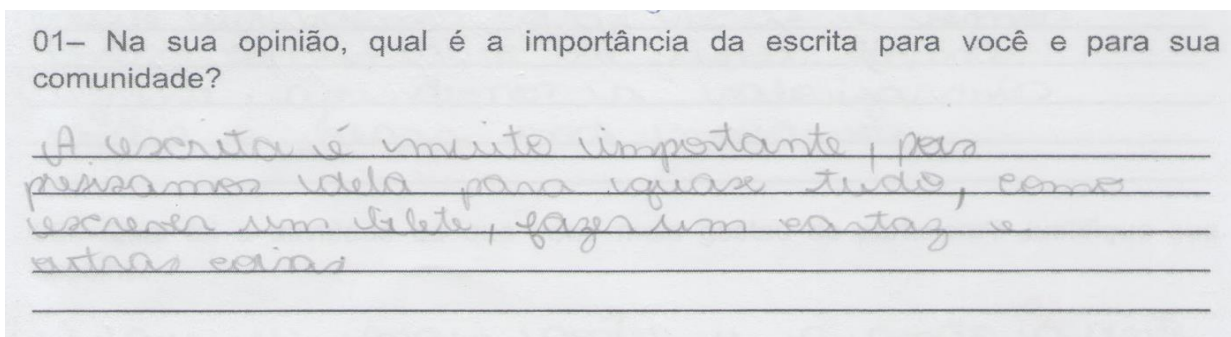 01– Na sua opinião, qual é a importância da escrita para você e para sua
comunidade?
A escrita é muito importante, pois
presisamos dela para quase tudo, como
escrever um bilete, fazer um cartaz e
outras coisas